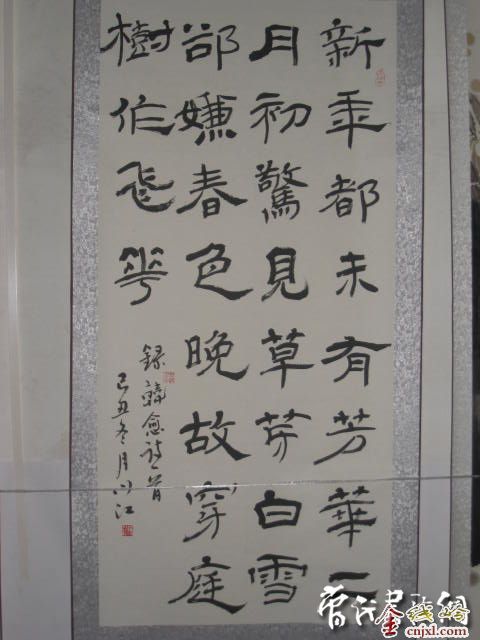 新年都未有芳華二
月初驚見草芽白雪
郤嫌春色晚故穿庭
樹作飛花
錄韓愈詩一首
己丑冬月